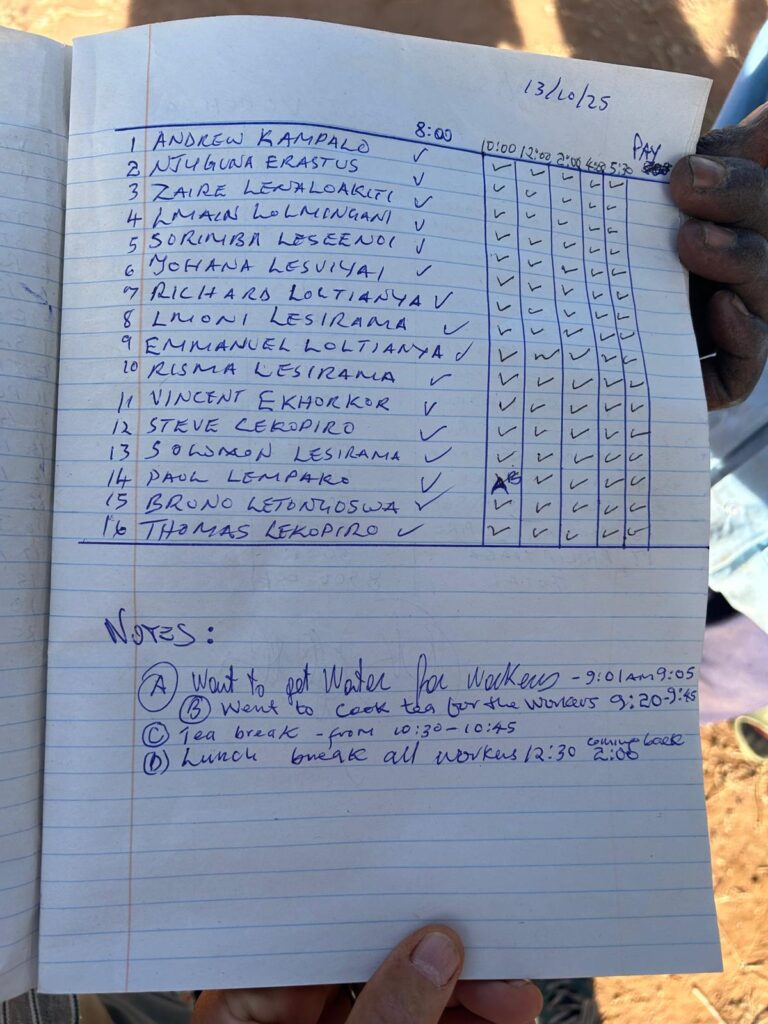 13/10/25
8:00 10:00 12:00 2:00 4:00 5:30 PAY
1 ANDREW KAMPALO ✓ ✓ ✓ ✓ ✓ ✓
2 NJUGUNA ERASTUS ✓ ✓ ✓ ✓ ✓ ✓
3 ZAIRE LENALOAKITI ✓ ✓ ✓ ✓ ✓ ✓
4 LMAIN LOLMINGANI ✓ ✓ ✓ ✓ ✓ ✓
5 SORIMBA LESEENOI ✓ ✓ ✓ ✓ ✓ ✓
6 JOHANA LESUIYAI ✓ ✓ ✓ ✓ ✓ ✓
7 RICHARD LOLTIANYA ✓ ✓ ✓ ✓ ✓ ✓
8 LMONI LESIRAMA ✓ ✓ ✓ ✓ ✓ ✓
9 EMMANUEL LOLTIANYA ✓ ✓ ✓ ✓ ✓ ✓
10 RISMA LESIRAMA ✓ ✓ ✓ ✓ ✓ ✓
11 VINCENT EKHORKOR ✓ ✓ ✓ ✓ ✓ ✓
12 STEVE LEKOPIRO ✓ ✓ ✓ ✓ ✓ ✓
13 SOLOMON LESIRAMA ✓ ✓ ✓ ✓ ✓ ✓
14 PAUL LEMPAKO ✓ AB ✓ ✓ ✓ ✓
15 BRUNO LETONYOSWA ✓ ✓ ✓ ✓ ✓ ✓
16 THOMAS LEKOPIRO ✓ ✓ ✓ ✓ ✓ ✓
NOTES:
(A) Want to get Water for workers - 9:01AM 9:05
(B) Went to cook tea for the workers 9:20-9:45
(C) Tea break - from 10:30-10:45
(D) Lunch break all workers 12:30 coming back 2:00